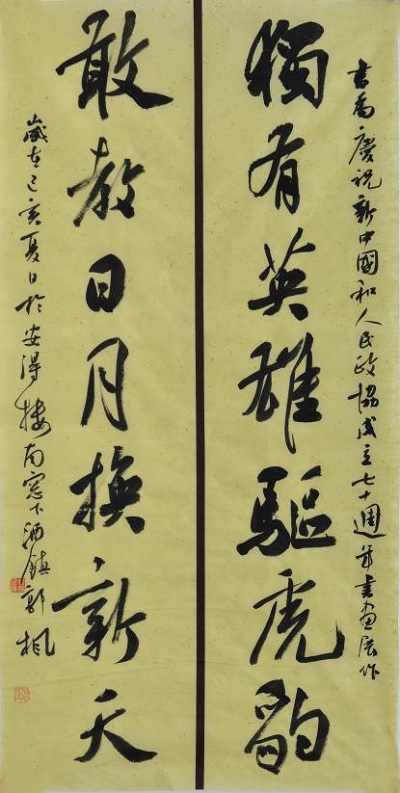 書為慶祝新中國和人民政協成立七十週年書畫展作
獨有英雄驅虎豹
敢教日月換新天
歲在己亥夏日於安得樓南窓下酒鎮郭楓